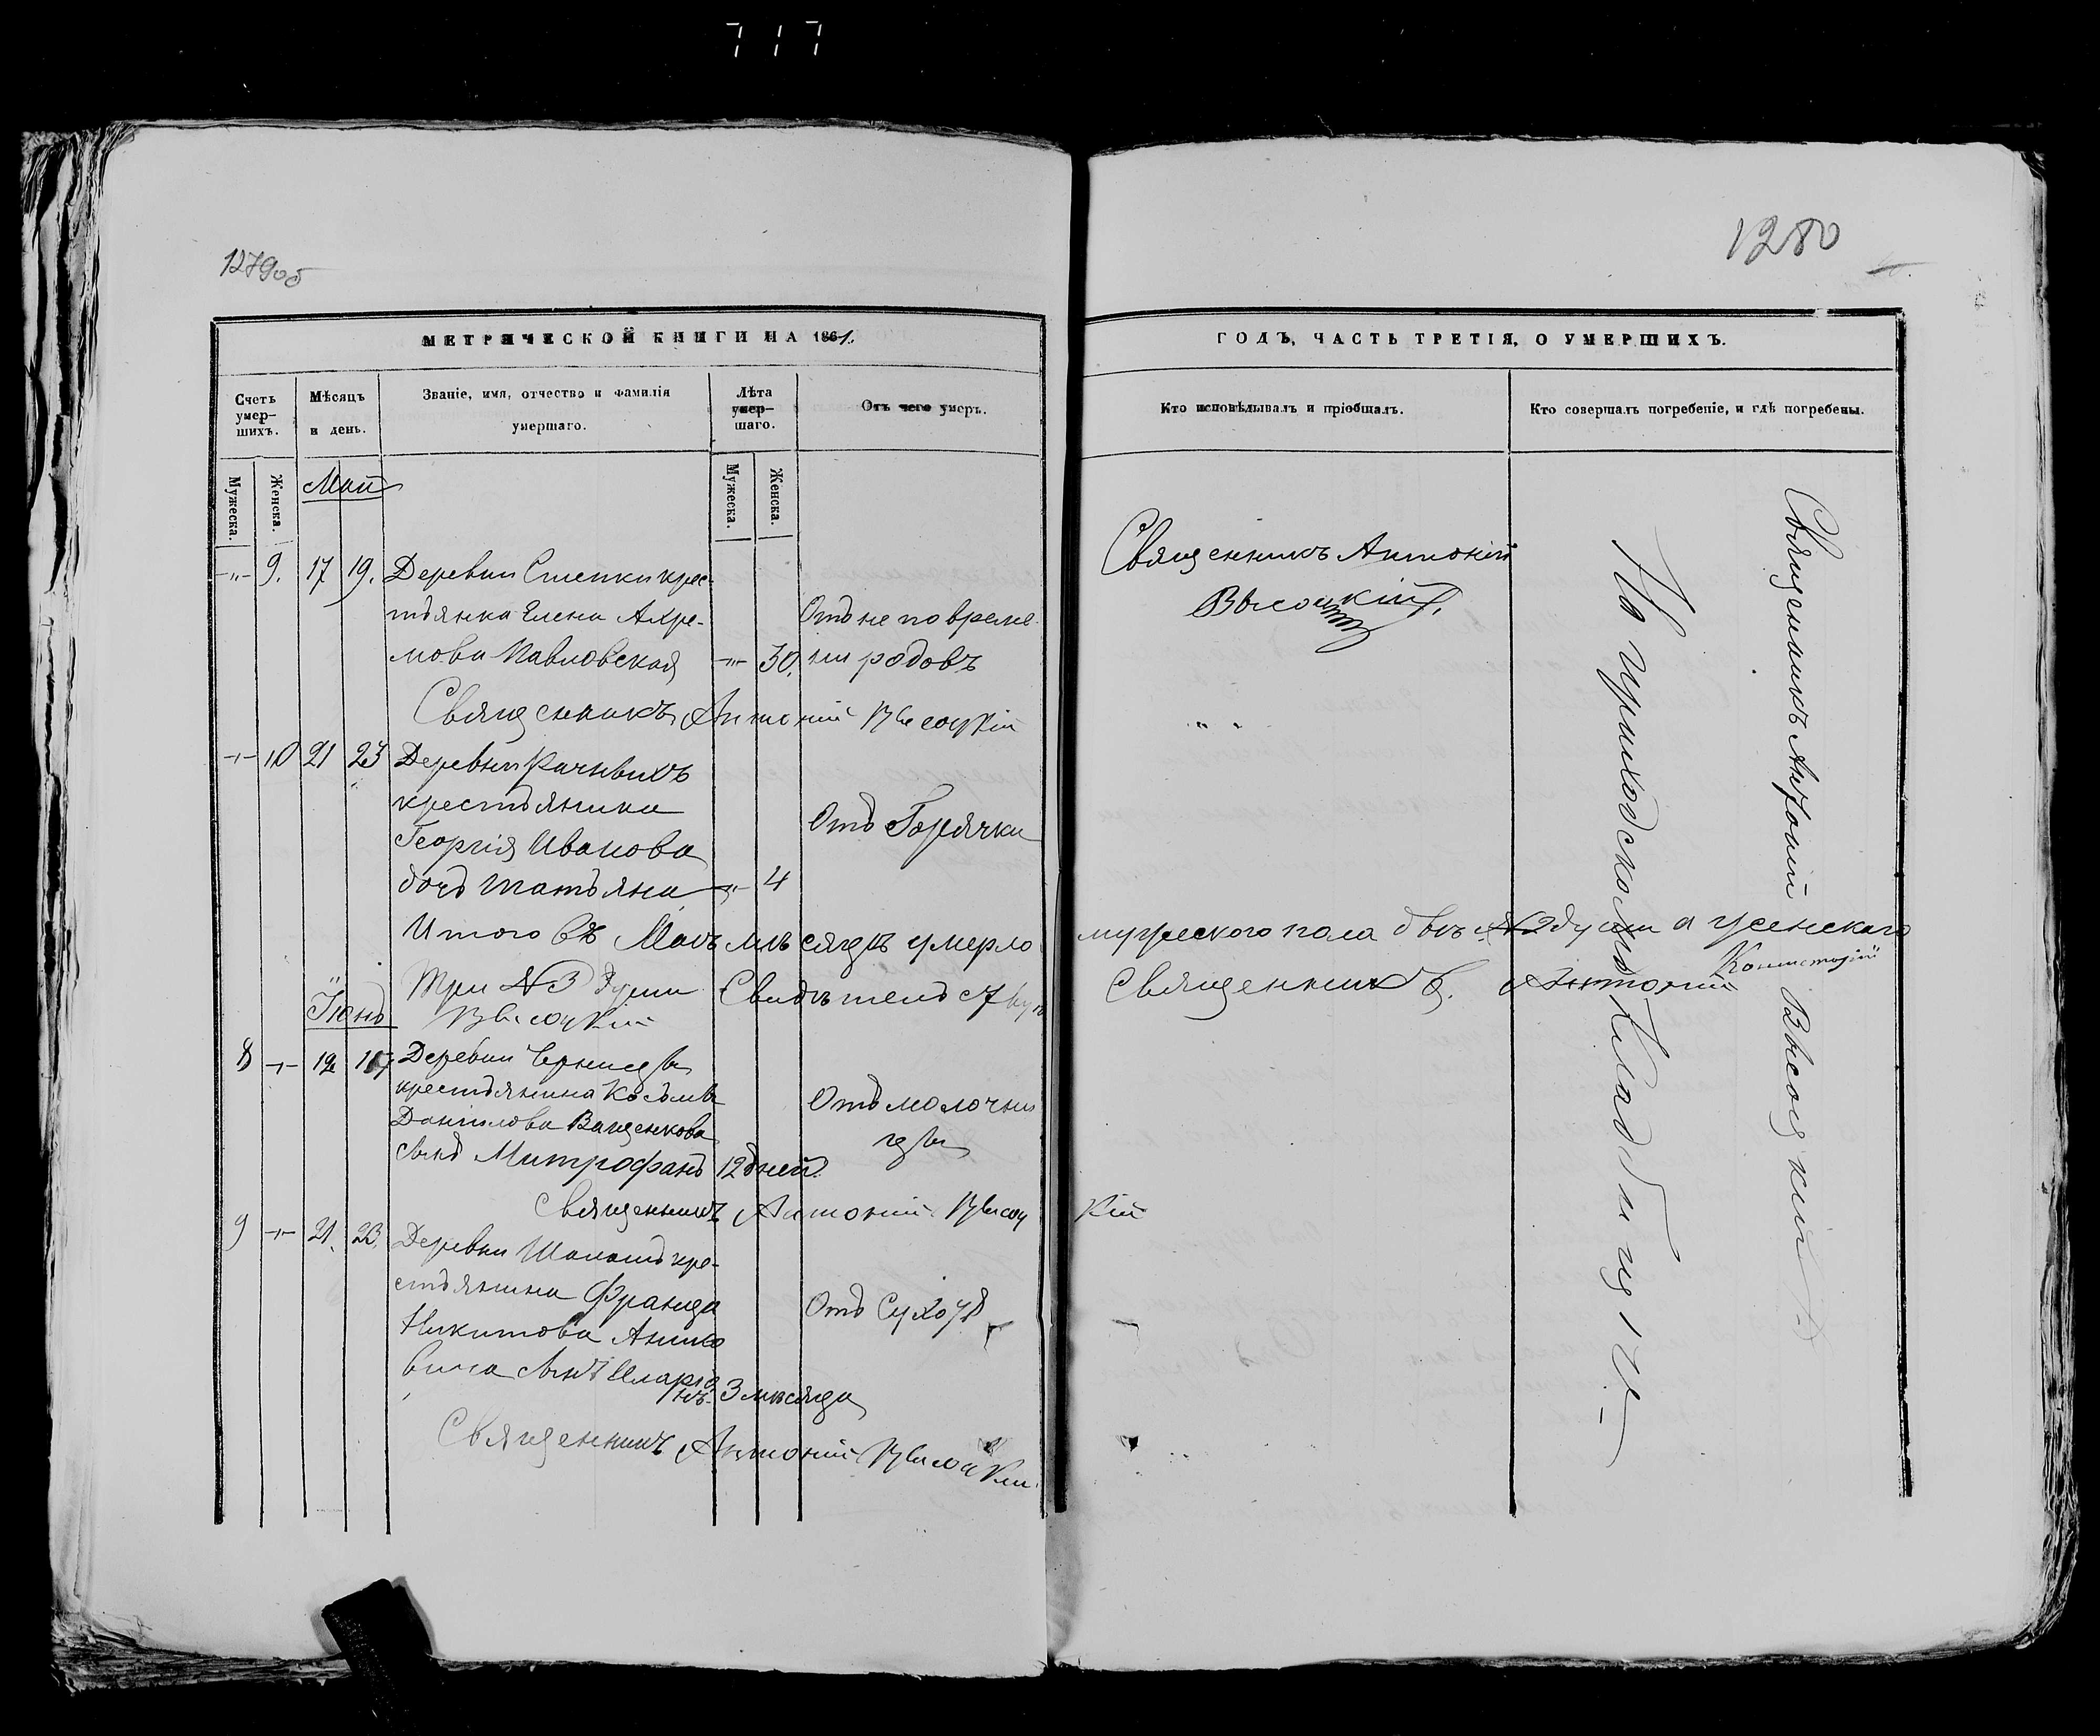 717
1279об
1280
МЕТРИЧЕСКОЙ КНИГИ НА 1861.
ГОДЪ, ЧАСТЬ ТРЕТІЯ, О УМЕРШИХЪ.
Счетъ умер-
шихъ.
Мѣсяцъ
и день.
Званіе, имя, отчество и фамилія
умершаго.
Лѣта
умер-
шаго.
Отъ чего умеръ.
Кто исповѣдывалъ и пріобщалъ.
Кто совершалъ погребеніе, и гдѣ погребены.
Мужеска.
Женска.
Мужеска.
Женска.
Май
-"- 9. 17 19. Деревни крес-
тьянка Елена Ахре-
мова Павловская -"- 30.
Отъ не по време-
ни родовъ
Священникъ Антоній
Высоцкій
Священникъ Антоній Высоцкій
" "
-"- 10 21 23 Деревни
крестьянина
Георгія Иванова
дочь Татьяна -"- 4
Отъ Горячки
Итого въ Маѣ мѣсяцѣ умерло мужеского пола двѣ №2 души а женскаго
три №3 души Свидѣтельствую Священникъ Антоній
Высоцкій
Іюнь
8 -"- 12 Деревни
крестьянина Козьмы
Данилова Ващенкова
сынъ Митрофанъ 12 дней.
Отъ молочни
цы
Священникъ Антоній Высоцкій
9 -"- 21. 23. Деревни кре-
стьянина Франца
Никитова
сынъ Иларіо
нъ. 3 мѣсяца
Отъ Сухотъ
Священникъ Антоній Высоцкій.
На приходскомъ кладбищѣ
Священникъ Антоній Высоцкій